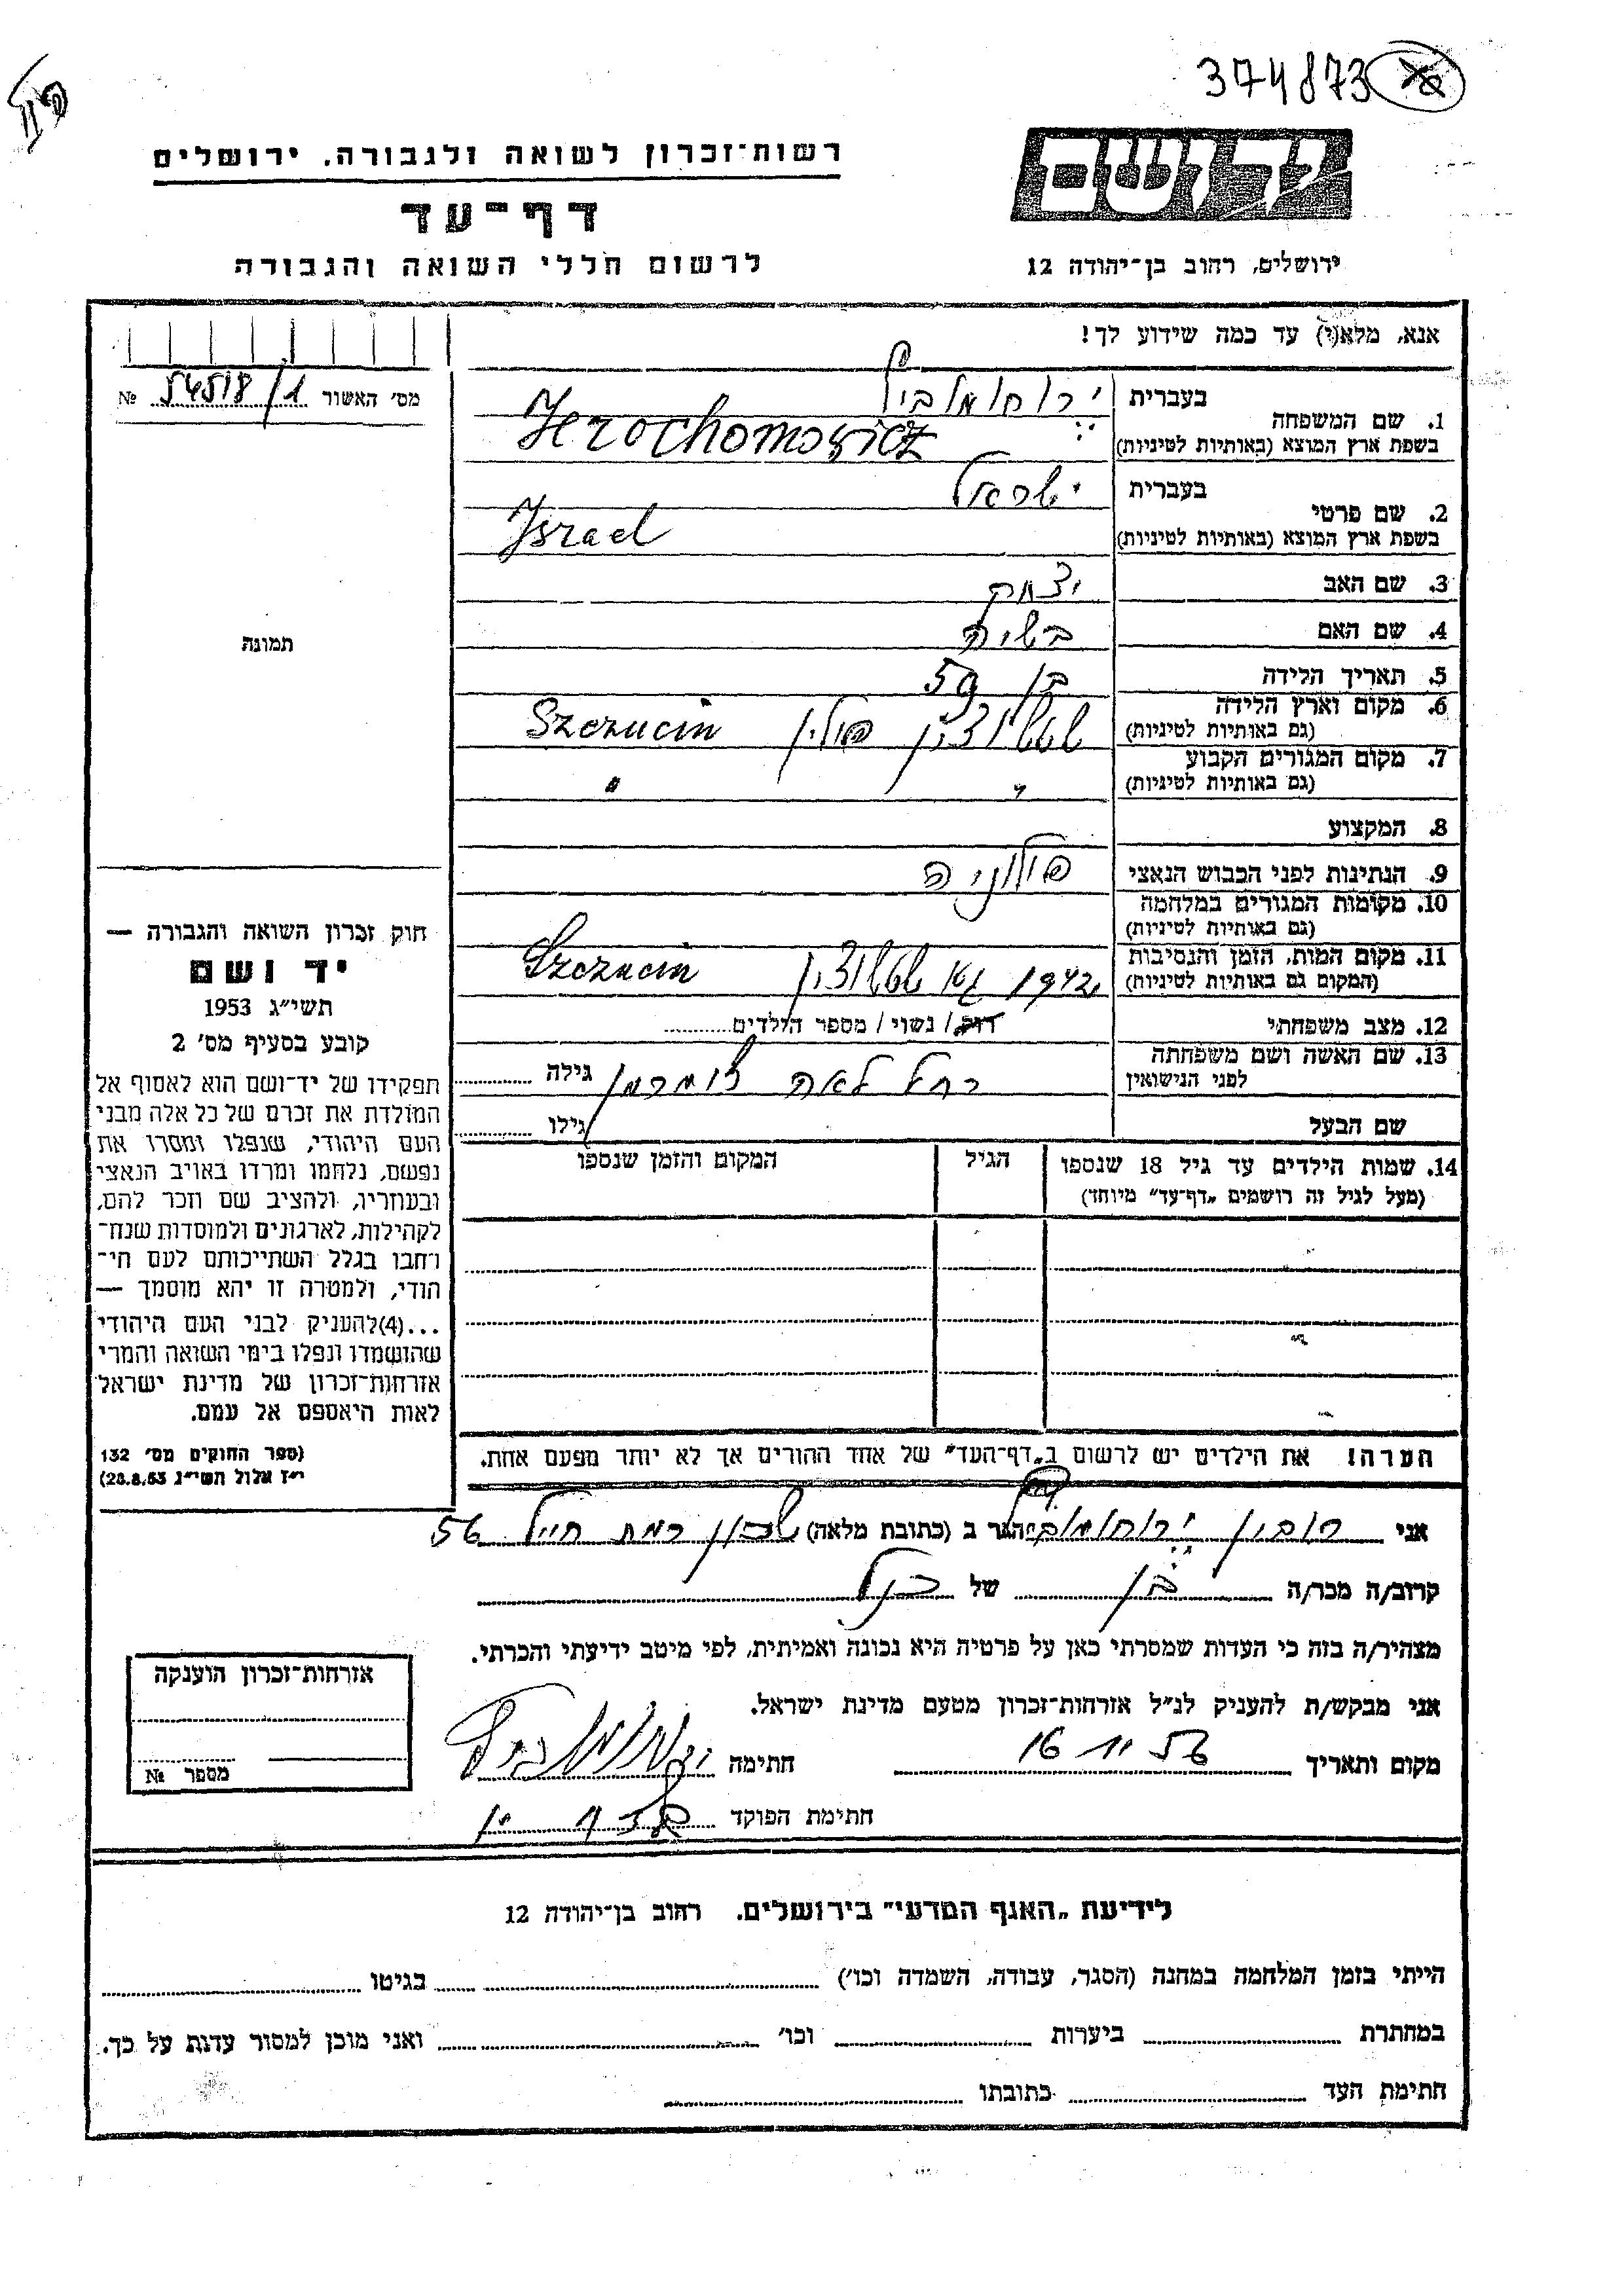 374873
רשות־זכרון לשואה ולגבורה. ירושלים
דף־עד
לרשום חללי השואה והגבורה
ידושם
ירושלים, רחוב בן־יהודה 12
אנא, מלא(י) עד כמה שידוע לך!
מס׳ האשור 54518/1 №
1. שם המשפחה
בעברית ירוחמוביץ
בשפת ארץ המוצא (באותיות לטיניות) Jerochomowicz
2. שם פרטי
בעברית ישראל
בשפת ארץ המוצא (באותיות לטיניות) Israel
3. שם האב יצחק
4. שם האם בשיה
5. תאריך הלידה בן 59
6. מקום וארץ הלידה
(גם באותיות לטיניות) פולין Szczucin
7. מקום המגורים הקבוע
(גם באותיות לטיניות) " "
8. המקצוע
9. הנתינות לפני הכבוש הנאצי פולניה
10. מקומות המגורים במלחמה
(גם באותיות לטיניות)
11. מקום המות, הזמן והנסיבות
(המקום גם באותיות לטיניות) 1942 Szczucin
12. מצב משפחתי רוק / נשוי / מספר הילדים
13. שם האשה ושם משפחתה
לפני הנישואין רחל לאה גילה
שם הבעל גילו
14. שמות הילדים עד גיל 18 שנספו הגיל המקום והזמן שנספו
(מעל לגיל זה רושמים „דף־עד״ מיוחד)
תמונה
חוק זכרון השואה והגבורה —
יד ושם
תשי״ג 1953
קובע בסעיף מס׳ 2
תפקידו של יד־ושם הוא לאסוף אל
המולדת את זכרם של כל אלה מבני
העם היהודי, שנפלו ומסרו את
נפשם, נלחמו ומרדו באויב הנאצי
ובעוזריו, ולהציב שם וזכר להם,
לקהילות, לארגונים ולמוסדות שנח־
רחבו בגלל השתייכותם לעם הי־
הודי, ולמטרה זו יהא מוסמך —
...(4)להעניק לבני העם היהודי
שהושמדו ונפלו בימי השואה והמרי
אזרחות־זכרון של מדינת ישראל
לאות היאספם אל עמם.
(ספר החוקים מס׳ 132
י״ז אלול תשי״ג 28.8.53)
הערה! את הילדים יש לרשום ב„דף־העד״ של אחד ההורים אך לא יותר מפעם אחת.
אני ירוחמוביץ הגר ב (כתובת מלאה) שכון רמת חייל 56
קרוב/ה מכר/ה בן של הנ״ל
מצהיר/ה בזה כי העדות שמסרתי כאן על פרטיה היא נכונה ואמיתית, לפי מיטב ידיעתי והכרתי.
אני מבקש/ת להעניק לנ״ל אזרחות־זכרון מטעם מדינת ישראל.
מקום ותאריך 16 11 56 חתימה
חתימת הפוקד
אזרחות־זכרון הוענקה
מספר №
לידיעת „האגף המדעי״ בירושלים. רחוב בן־יהודה 12
הייתי בזמן המלחמה במחנה (הסגר, עבודה, השמדה וכו׳) בגיטו
במחתרת ביערות וכו׳ ואני מוכן למסור עדות על כך.
חתימת העד כתובתו